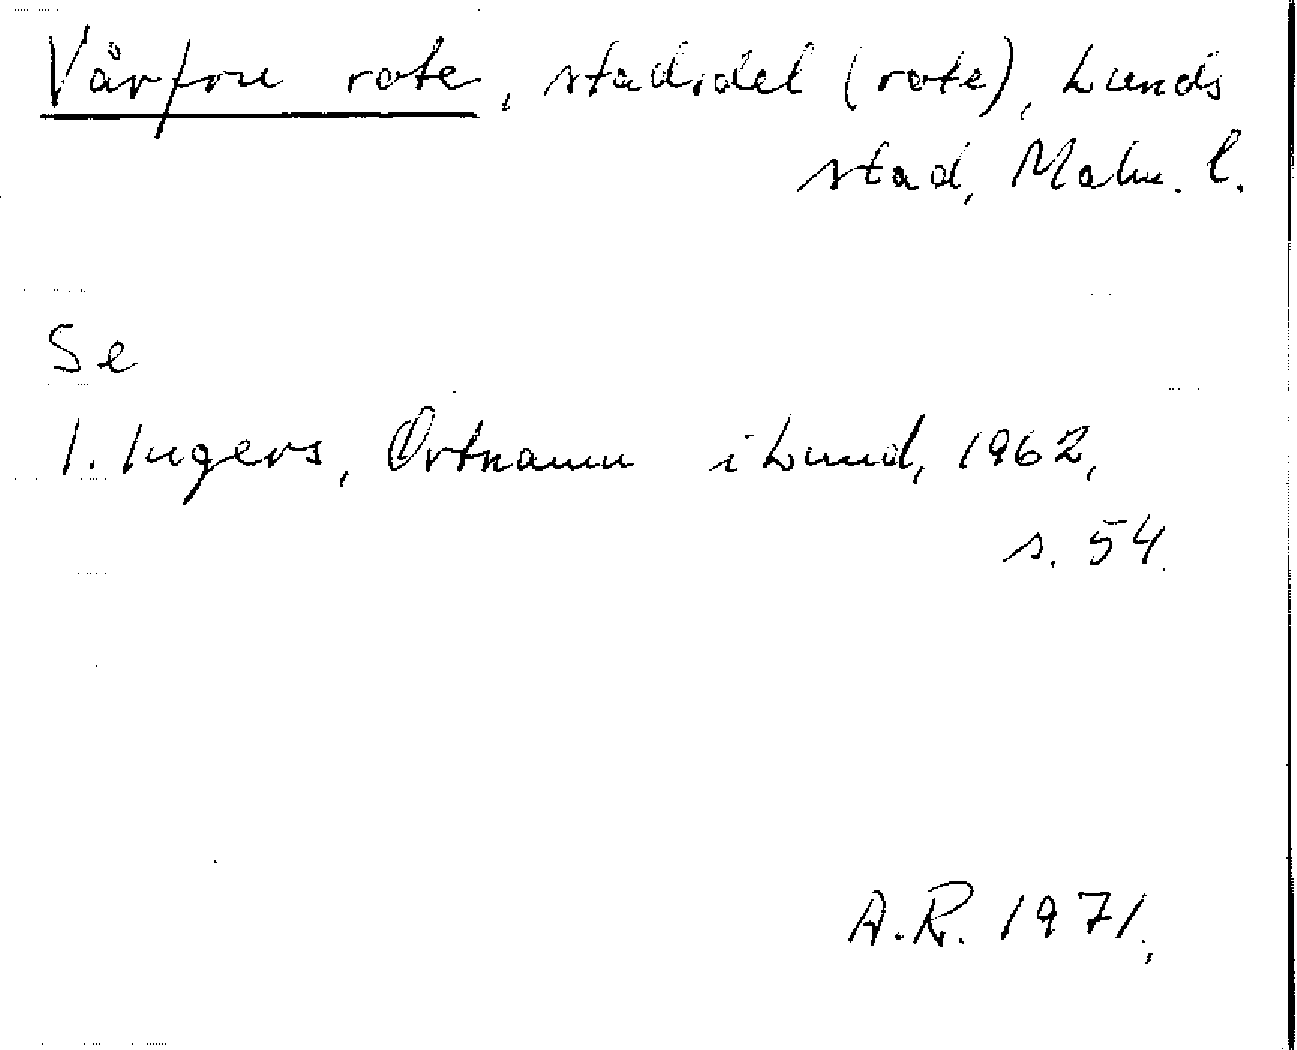 Vårfru rote, stadsdel (rote), Lunds
stad, Malm. l.
Se
I. Ingers, Ortnamn i Lund, 1962,
s. 54.
A.R. 1971.